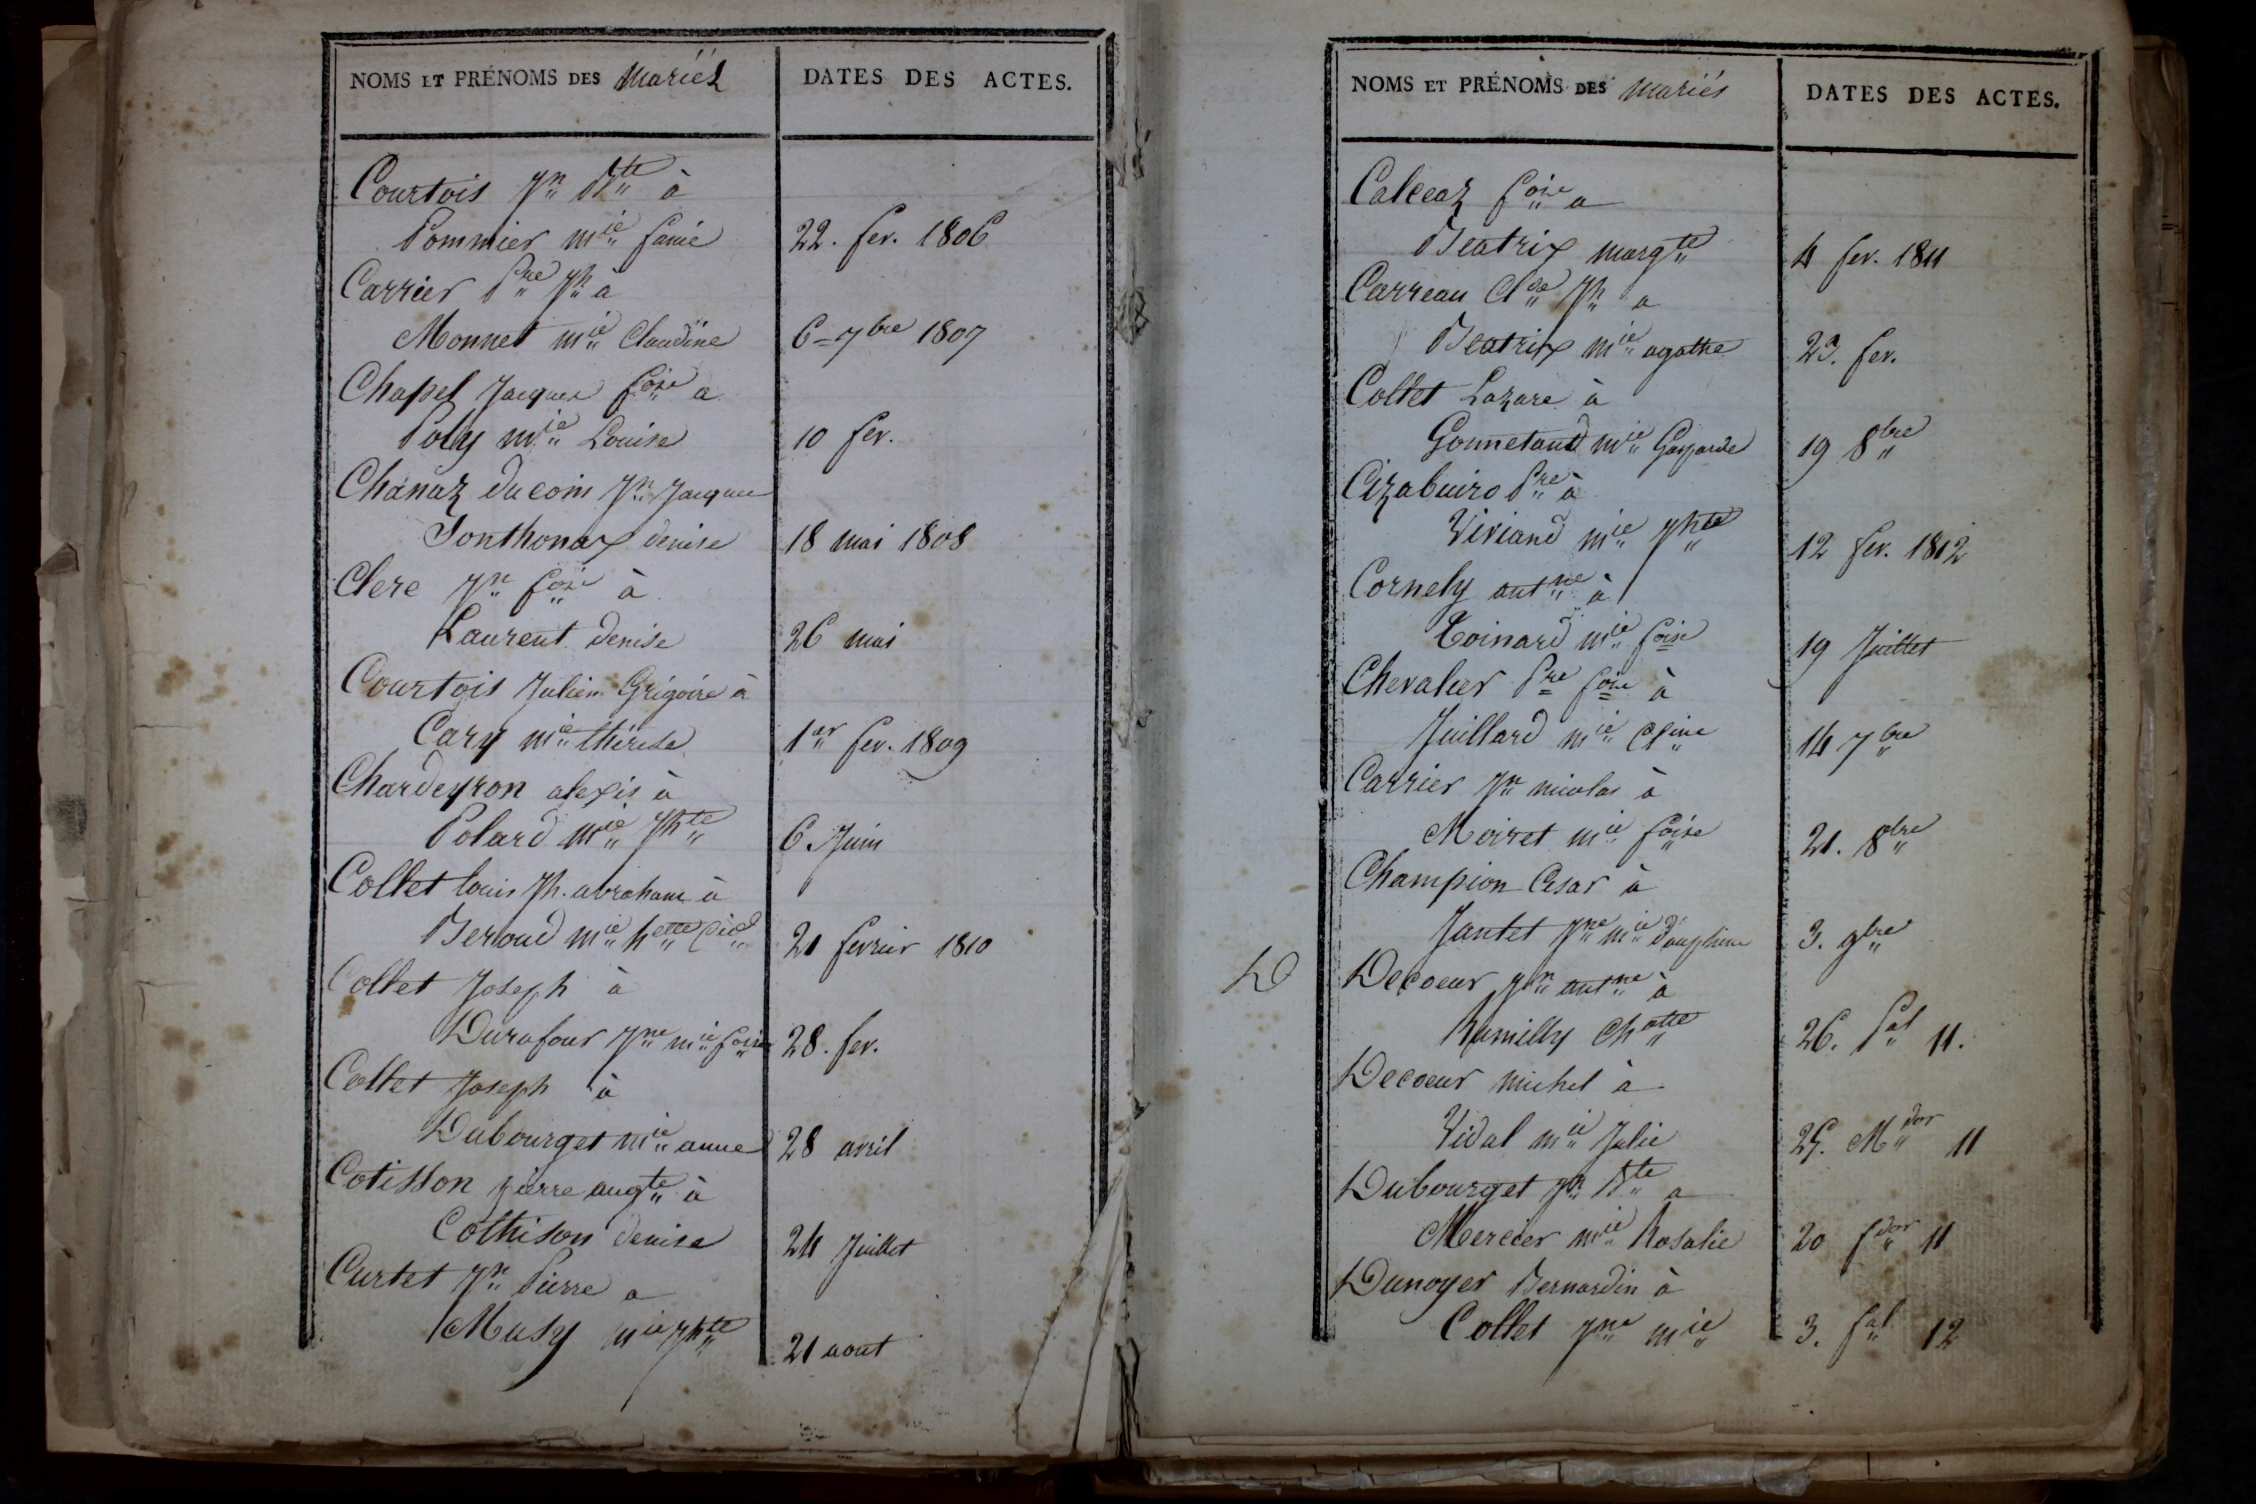 NOMS ET PRÉNOMS DES mariés
DATES DES ACTES.
Courtois Jn Bte à
Pommier mie
22. fev. 1806
Carrier Pre Jh à
Monnet mie Claudine
6 = 7bre 1807
Chapel Jacques fois a
Poly mie Louise
10 fev.
Chanaz ducoin Jn Jacques
Jonthonax denise
18 mai 1808
Clere Jn fois à
Laurent denise
26 mai
Courtois Julien Grégoire à
Cary mie thérèse
1er fev. 1809
Chardeyron alexis à
Polard mie Jhte
6 Juin
Collet louis Jh. abraham à
Beroud mie hette
21 fevrier 1810
Collet Joseph à
Durafour Jne mie foise
28. fev.
Collet Joseph à
Dubourget mie anne
28 avril
Cotisson pierre augte à
Cothison denise
24 Juillet
Curtet Jn Pierre a
Musy mie Jhte
21 aout
NOMS ET PRÉNOMS DES mariés
DATES DES ACTES.
Calceaz fois a
Beatrix margte
4 fev. 1811
Carreau Clde Jh a
Beatrix mie agathe
23. fev.
Collet Lazare à
mie Gasparde
19 8bre
Pre à
Viviand mie Jhte
12 fev. 1812
Cornely antne à
Coinard mie foise
19 Juillet
Chevalier Pre fois à
Juillard mie
14 7bre
Carrier Jn nicolas à
Moiret mie foise
21. 8bre
Champion Cesar à
Jantet Jne mie Dauphine
3. 9bre
D
Decoeur Jn antne à
Rumilly Chotte
26. Pal 11.
Decoeur michel à
Vidal mie Julie
25. Mdor 11
Dubourget Jn Bte a
Mercier mie Rosalie
20 fdor 11
Dunoyer Bernardin à
Collet Jne mie
3. fal 12